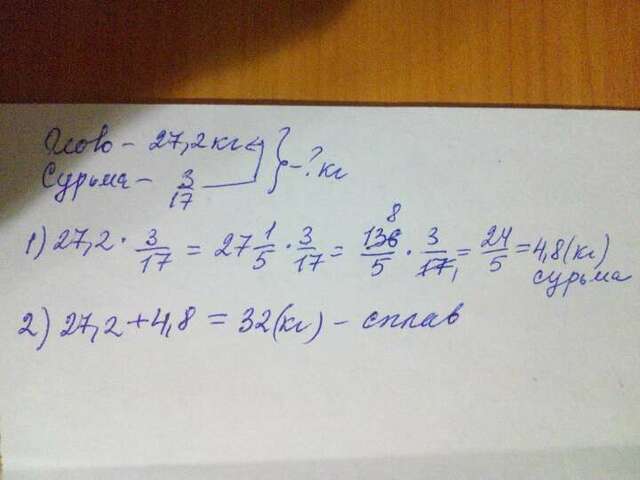 Олово - 27,2 кг } - ? кг
Сурьма - 3/17
1) 27,2 · 3/17 = 27 1/5 · 3/17 = 136/5 · 3/17 = 24/5 = 4,8 (кг)
8 1
сурьма
2) 27,2 + 4,8 = 32 (кг) - сплав